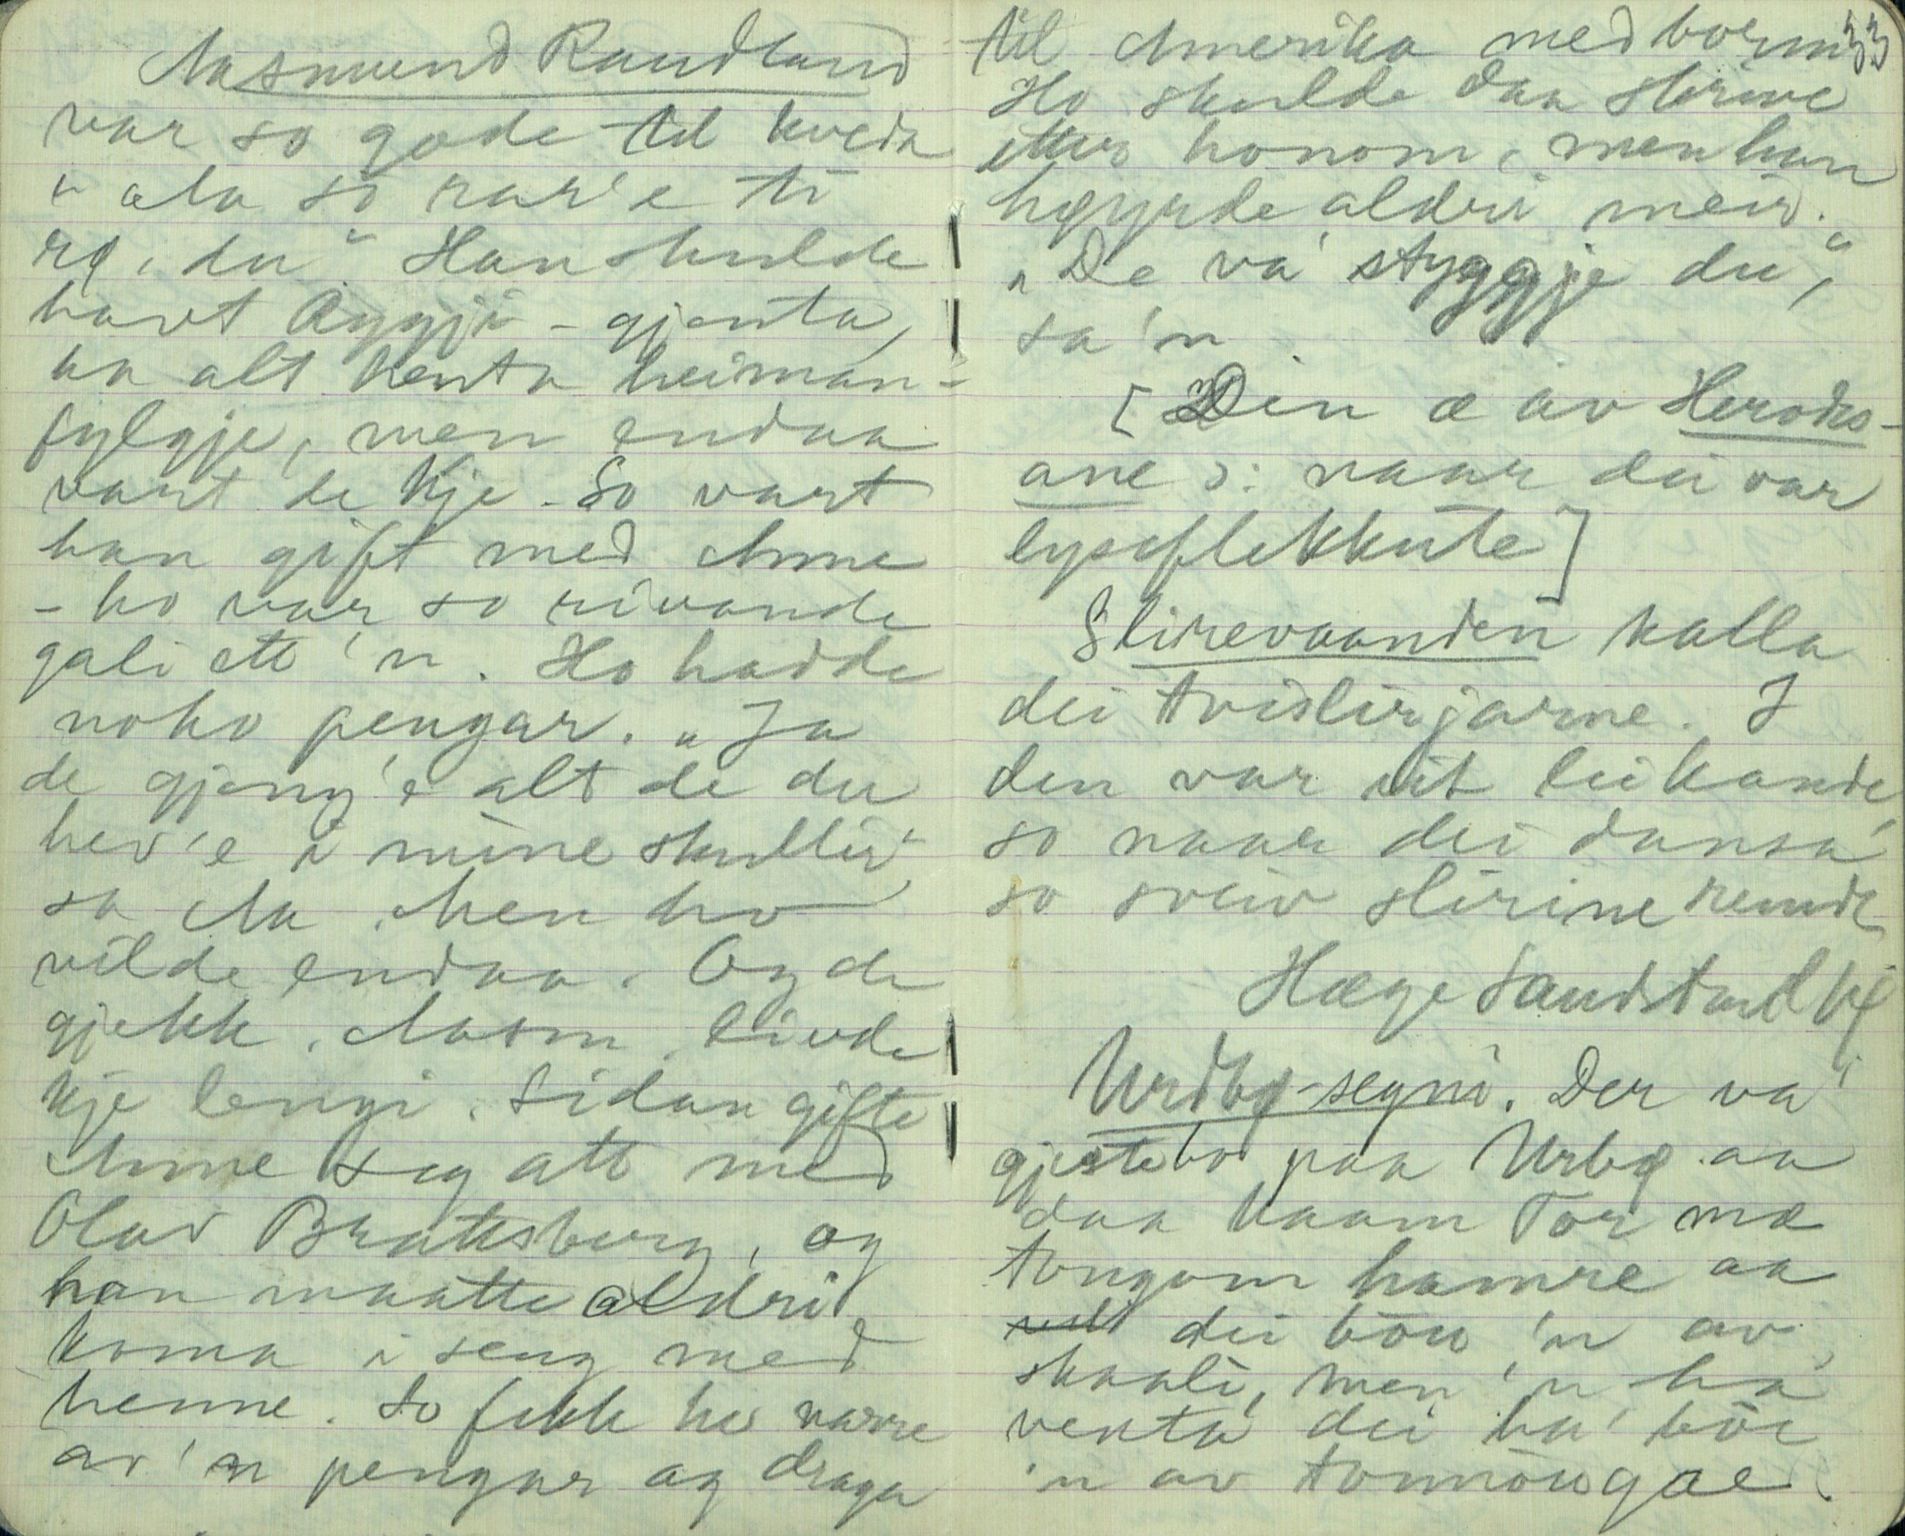 Aasmund Raudland
var so gode til kveda
"ala so rar'e ti
rø, du" Han skulde
havt Byggji-gjenta,
ha alt henta heiman-
fylgje, men endaa
vart de kje. So vart
han gift med Anne
- ho var so rivande
gali ett 'n. Ho hadde
noko pengar. "Ja
de gjeng'e alt de du
hev'e i mine skuller"
sa Aa. Men ho
vilde endaa. Og de
gjekk. Aasm. livde
kje lengi. Sidan gifte
Anne seg att med
Olav Brattsberg, og
han maatte aldri
koma i seng med
henne. So fekk ho narre
av 'n pengar og draga
33
til Amerika med borni
Ho skulde daa skrive
etter honom, men han
høyrde aldri meir.
"De va' styggje du",
sa'n
[Din æ av Herodes-
ane ɔ: naar dei var
lyseflekkute]
Slirevaanden kalla
dei tvislirjarne. I
den var eit leikande,
so naar dei dansa'
so sveiv slirine rundt
Hæge Sandsland Kj
Urdbø-segni. Der va'
gjestebod paa Urbø aa
daa kaam Tor mæ
tongom hamre aa
dei bou 'n av
skaali, men 'n ha'
venta' dei ha' böe
'n av tonnougae.